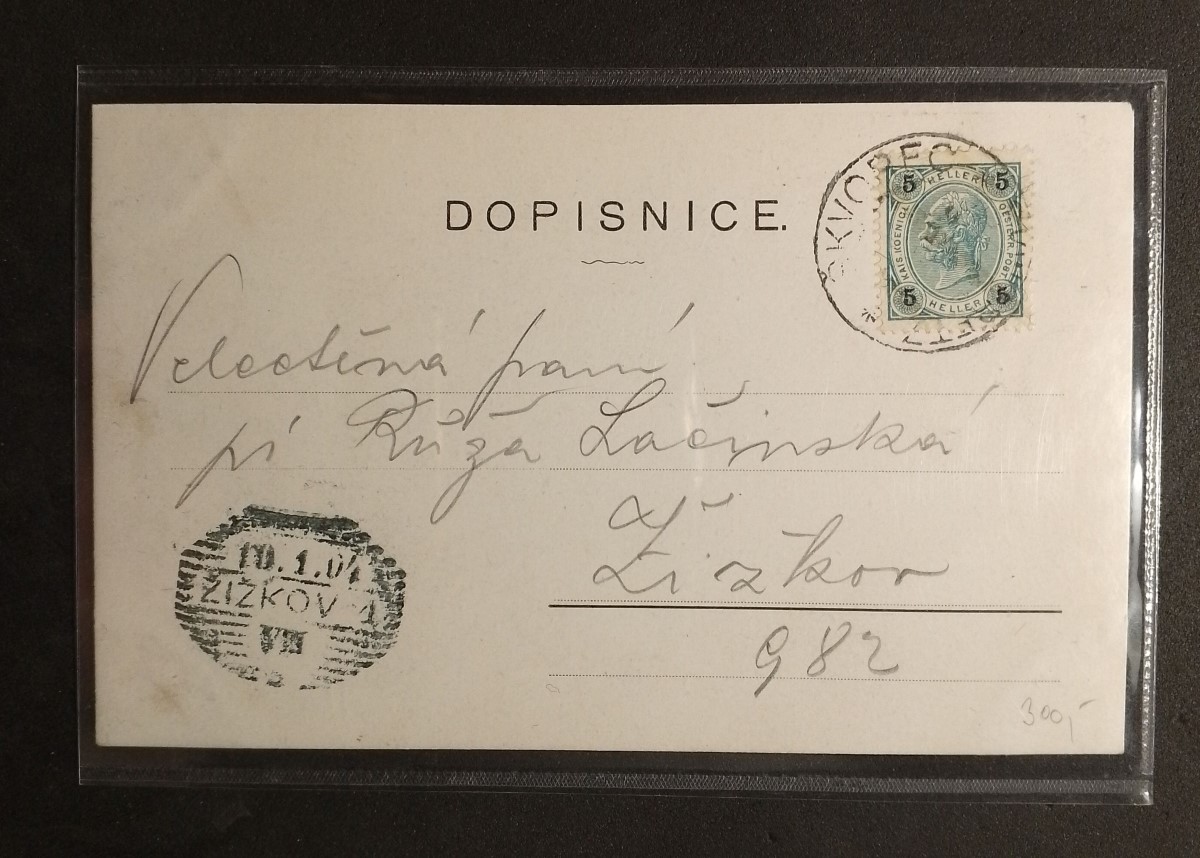 DOPISNICE.
ŠKVOREC
5 HELLER 5
KAIS. KOENIGL. OESTERR. POST.
5 HELLER 5
Velectěná paní
pí Růža Lačinská
Žižkov
982
10.1.04
ŽIŽKOV 1
VIII
300,-